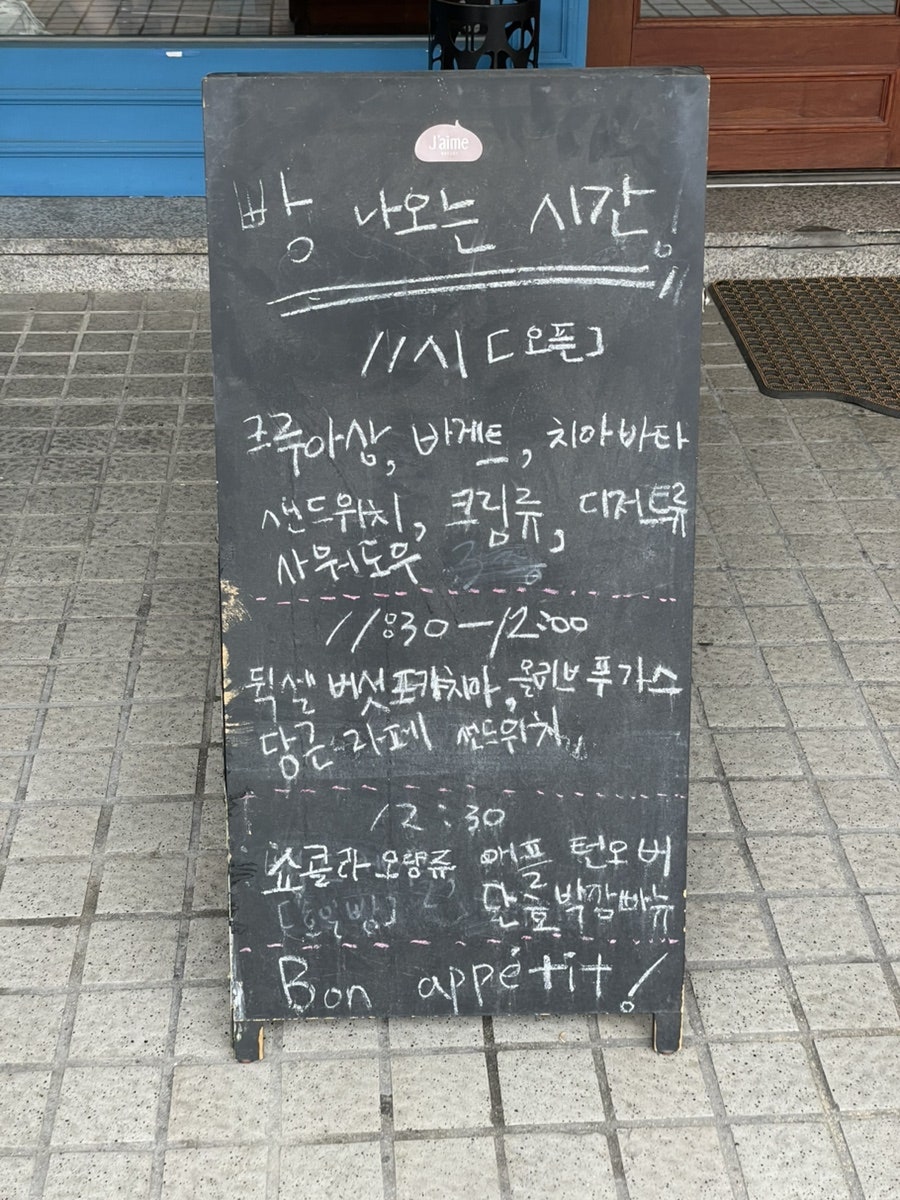 J'aime
빵 나오는 시간!
11시 [오픈]
크루아상, 바게트, 치아바타
샌드위치, 크림류, 디저트류
사워도우
11:30-12:00
뒥셀 버섯포카치아, 올리브 푸가스
당근 라페 샌드위치
12:30
쇼콜라 오랑류 애플 턴오버
단호박깜빠뉴
Bon appétit!